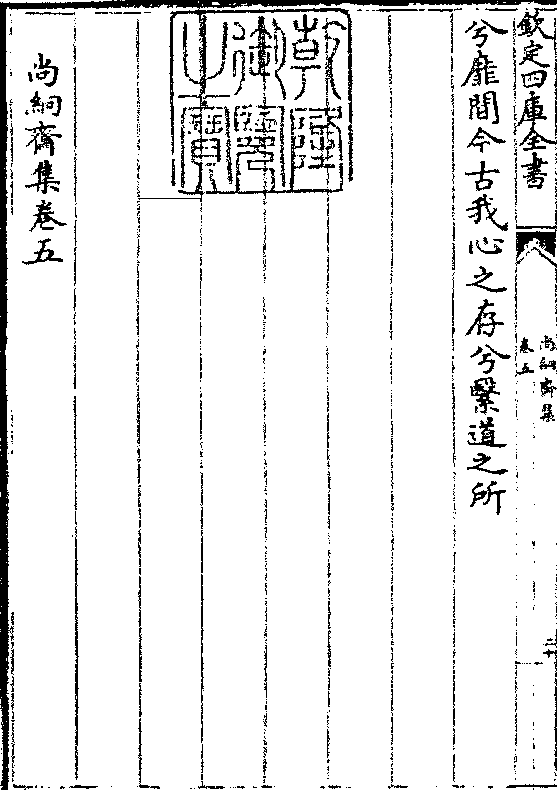 欽定四庫全書
尚絅齋集
卷五
二十
兮靡間今古我心之存兮繄道之所
乾隆御覽之寶
尚絅齋集卷五